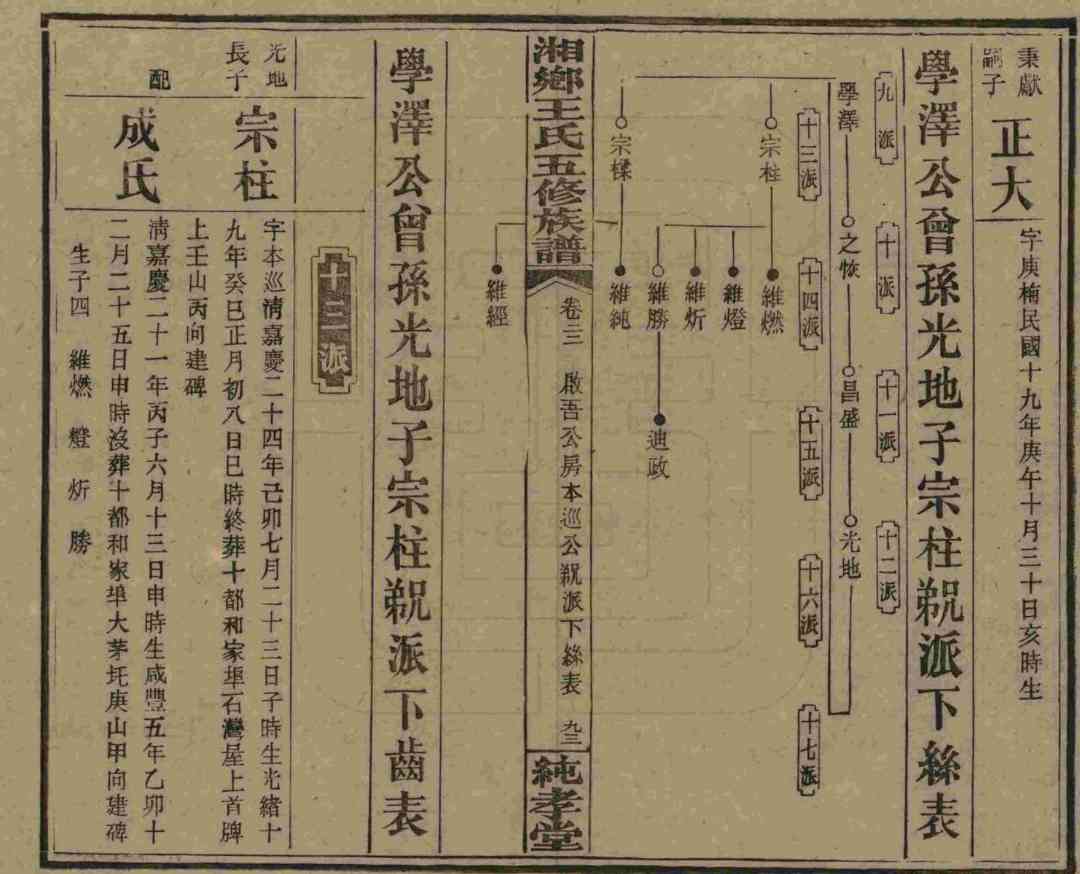 秉獻
嗣子
正大
字庚楠民國十九年庚午十月三十日亥時生
學澤公曾孫光地子宗柱派下絲表
九派
十派
十一派
十二派
學澤
之恢
昌盛
光地
十三派
十四派
十五派
十六派
十七派
宗柱
維燃
維燈
維炘
維勝
迪政
宗樑
維純
維經
湘鄉王氏五修族譜
卷三
啟吾公房本巡公派下絲表
九三
純孝堂
學澤公曾孫光地子宗柱派下齒表
十三派
光地
長子
宗柱
字本巡清嘉慶二十四年己卯七月二十三日子時生光緒十
九年癸巳正月初八日巳時終葬十都和家埠石灣屋上首牌
上壬山丙向建碑
配
成氏
清嘉慶二十一年丙子六月十三日申時生咸豐五年乙卯十
二月二十五日申時沒葬十都和家埠大茅圫庚山甲向建碑
生子四 維燃 燈 炘 勝